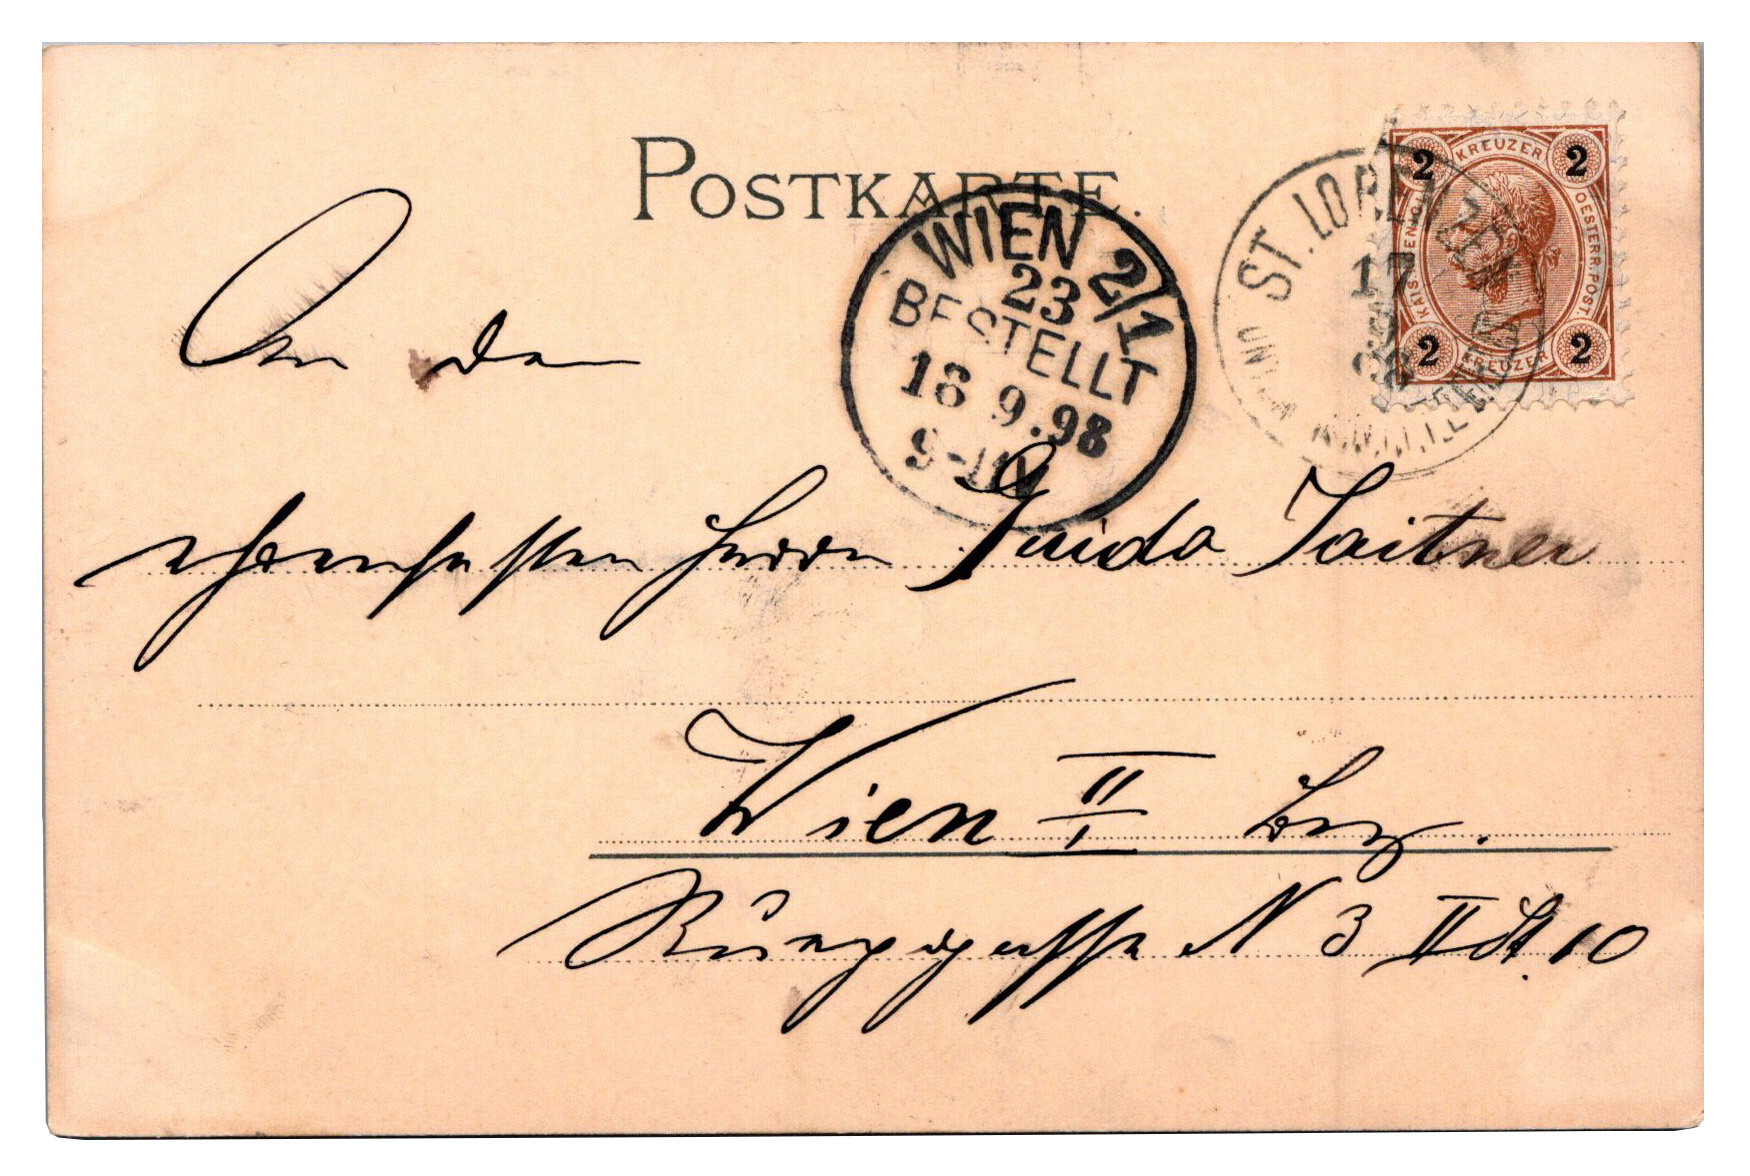 POSTKARTE.
2 KREUZER 2
KAIS. KÖNIGL. OESTERR. POST.
2 KREUZER 2
ST. LORENZEN
17
9
98
WIEN 2/1
23
BESTELLT
18 9.98
9-
An den
ehrenfesten Herrn Guido
Wien II/I Bez.
N 3 II St. 10